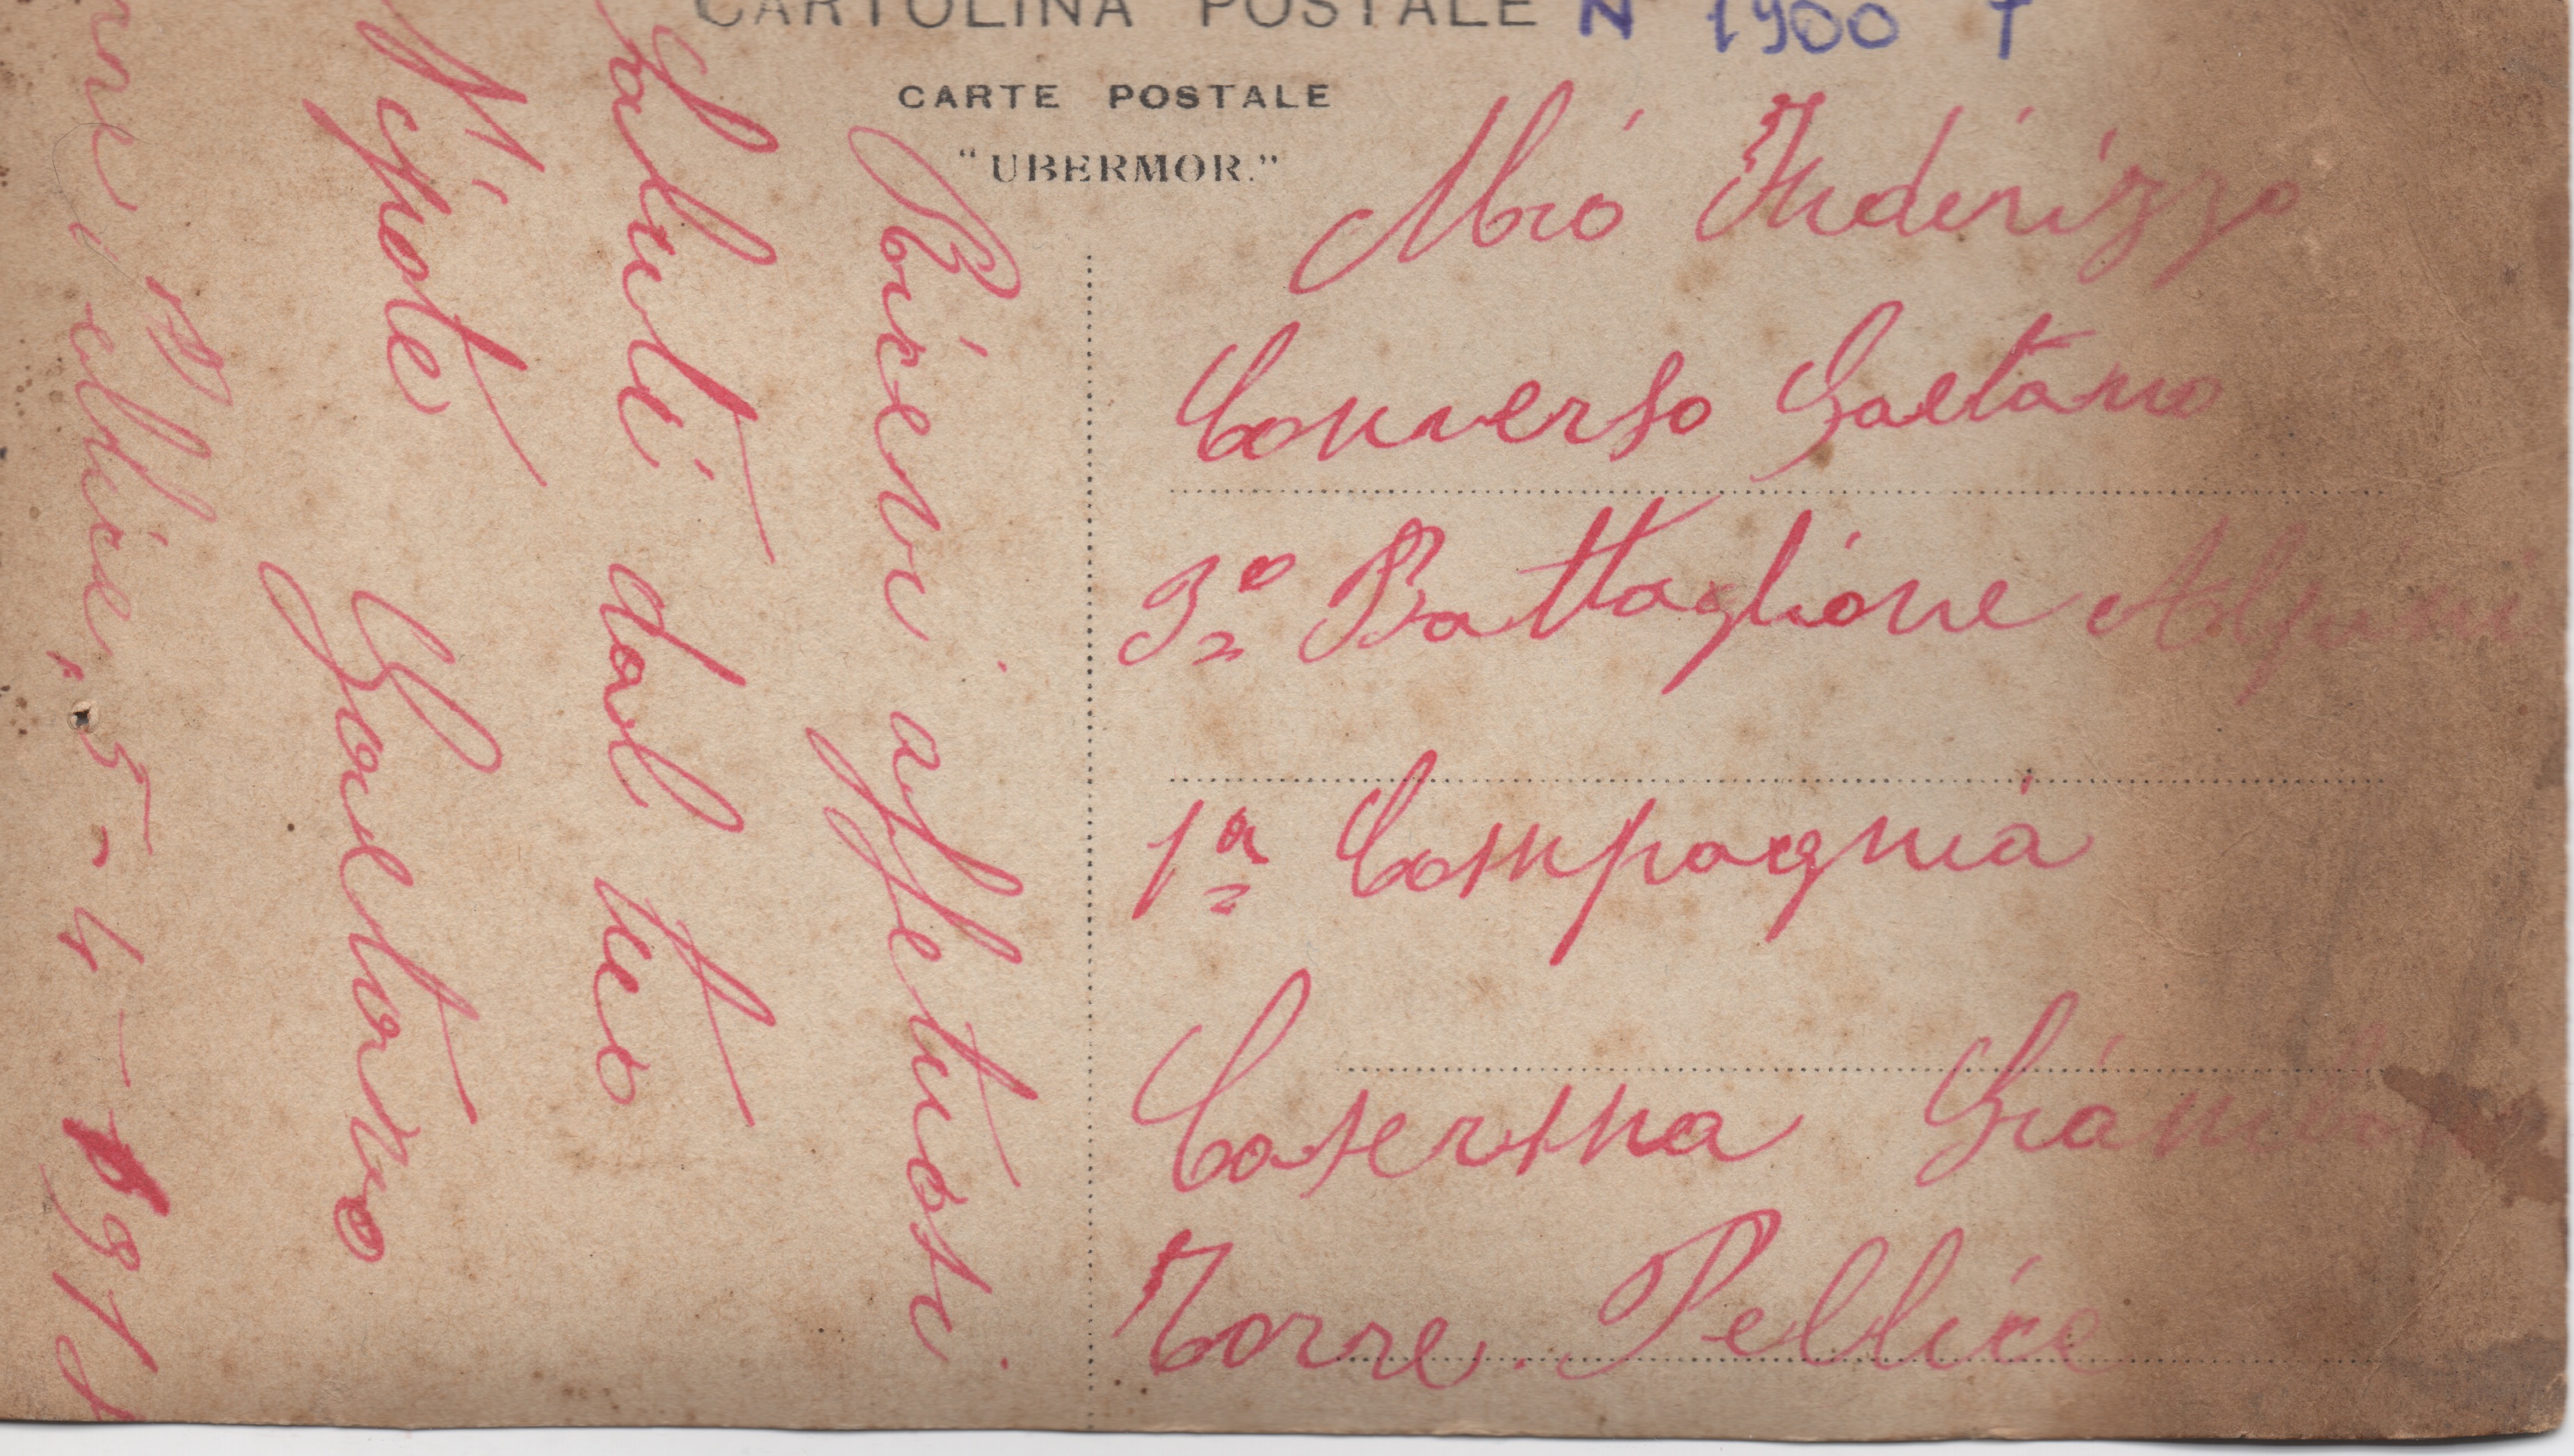 CARTOLINA POSTALE N 1900 T
CARTE POSTALE
"UBERMOR."
Mio Inderizzo
Converso Gaetano
3º Battaglione Alpini
1ª Compagnia
Caserma
Torre. Pellice
Ricevi affetuosi
Saluti dal tuo
N'pote Gaetano
Pellice, 5-4-191